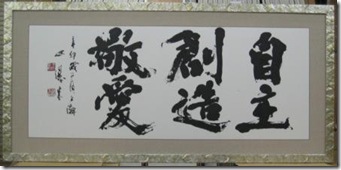 自主
創造
敬愛